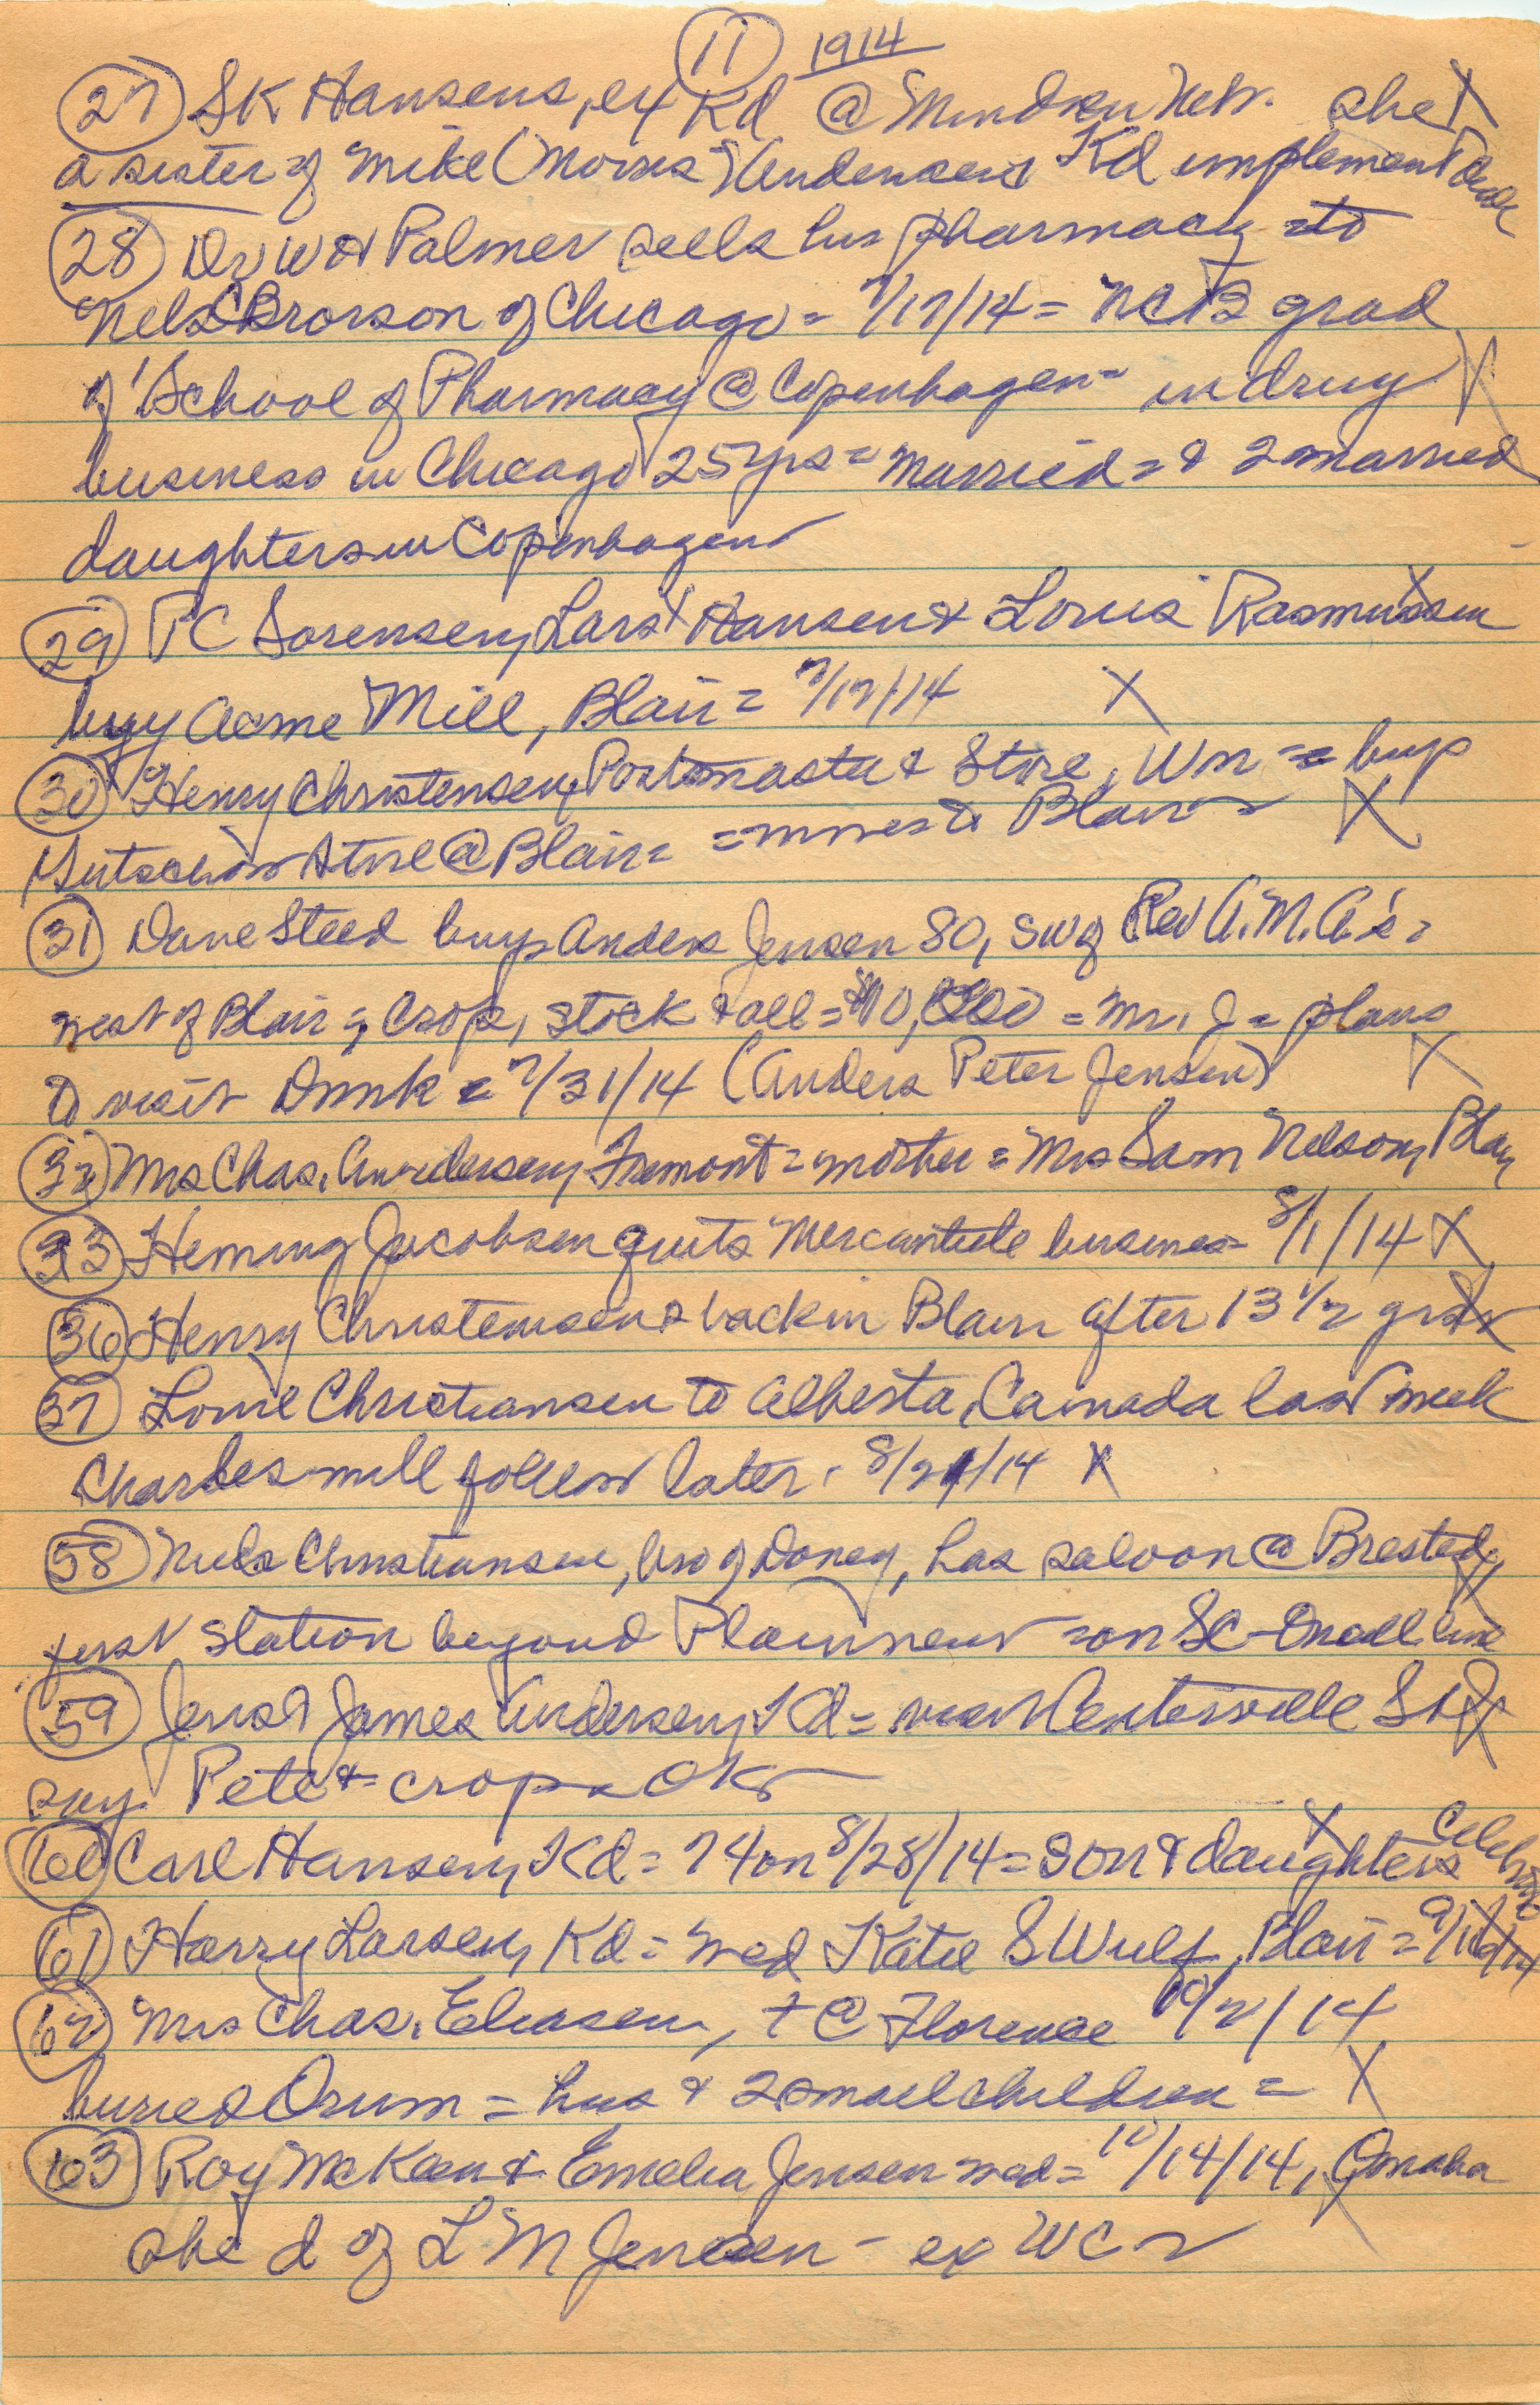 (11) 1914
(27) SK Hansens, ex Kd @ Minden Nebr. she X
a sister of Mike (Morris) Andersen Kd implement dealer
(28) Dr W H Palmer sells his pharmacy to
Nels C Brorson of Chicago = 7/17/14 = NCB grad
of School of Pharmacy @ Copenhagen = in drug X
business in Chicago 25 yrs = married = & 2 married
daughters in Copenhagen
(29) PC Sorensen, Lars Hansen & Louis Rasmussen
buy Acme Mill, Blair = 7/17/14 X
(30) Henry Christensen, Postmaster & Store, Wn = buys
store @ Blair = = moves to Blair X
(31) Dane Steed buys Anders Jensen 80, SW of Rev A.M.A.'s =
west of Blair = Crop, stock & all = = Mr. J = plans
to visit Dnmk = 7/31/14 (Anders Peter Jensen) X
(32) Mrs Chas. Andersen, Fremont = mother = Mrs Sam Nelson, Blair
(33) Heming Jacobsen quits Mercantile business = 8/1/14 X
(36) Henry Christensens back in Blair after 13 1/2 yrs X
(37) Louie Christiansen to Alberta, Canada last week
Charles will follow later. 8/21/14 X
(58) Niels Christiansen, bro of Doney, has saloon @ Brested, X
first station beyond Plainview = on SC-Oneill line
(59) Jens & James Andersen, Kd = visit Centerville SD X
say Pete & crops OK
(60) Carl Hansen, Kd = 74 on 8/28/14 = son & daughters celebrate X
(61) Harry Larsen, Kd = wed Katie S Wulf, Blair = X
(62) Mrs Chas. Eliasen, † @ Florence 10/2/14
buried Orum = hus & 2 small children = X
(63) Roy McKeen & Emelia Jensen wed = 10/14/14, Omaha X
she d of L M Jensen - ex WC